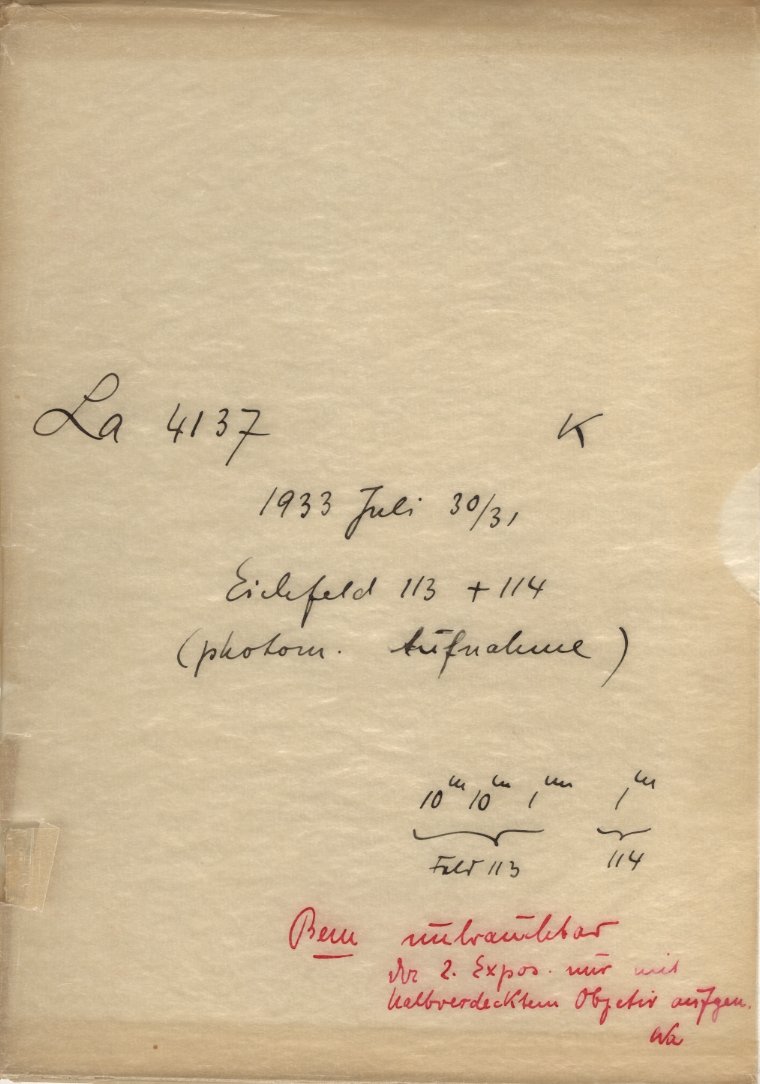 La 4137 K
1933 Juli 30/31
Eichfeld 113 + 114
(photom. Aufnahme)
10ᵐ 10ᵐ 1ᵐ 1ᵐ
Feld 113 114
Bem unbrauchbar
2. Expos. nur mit
halbverdecktem Objektiv aufgen.